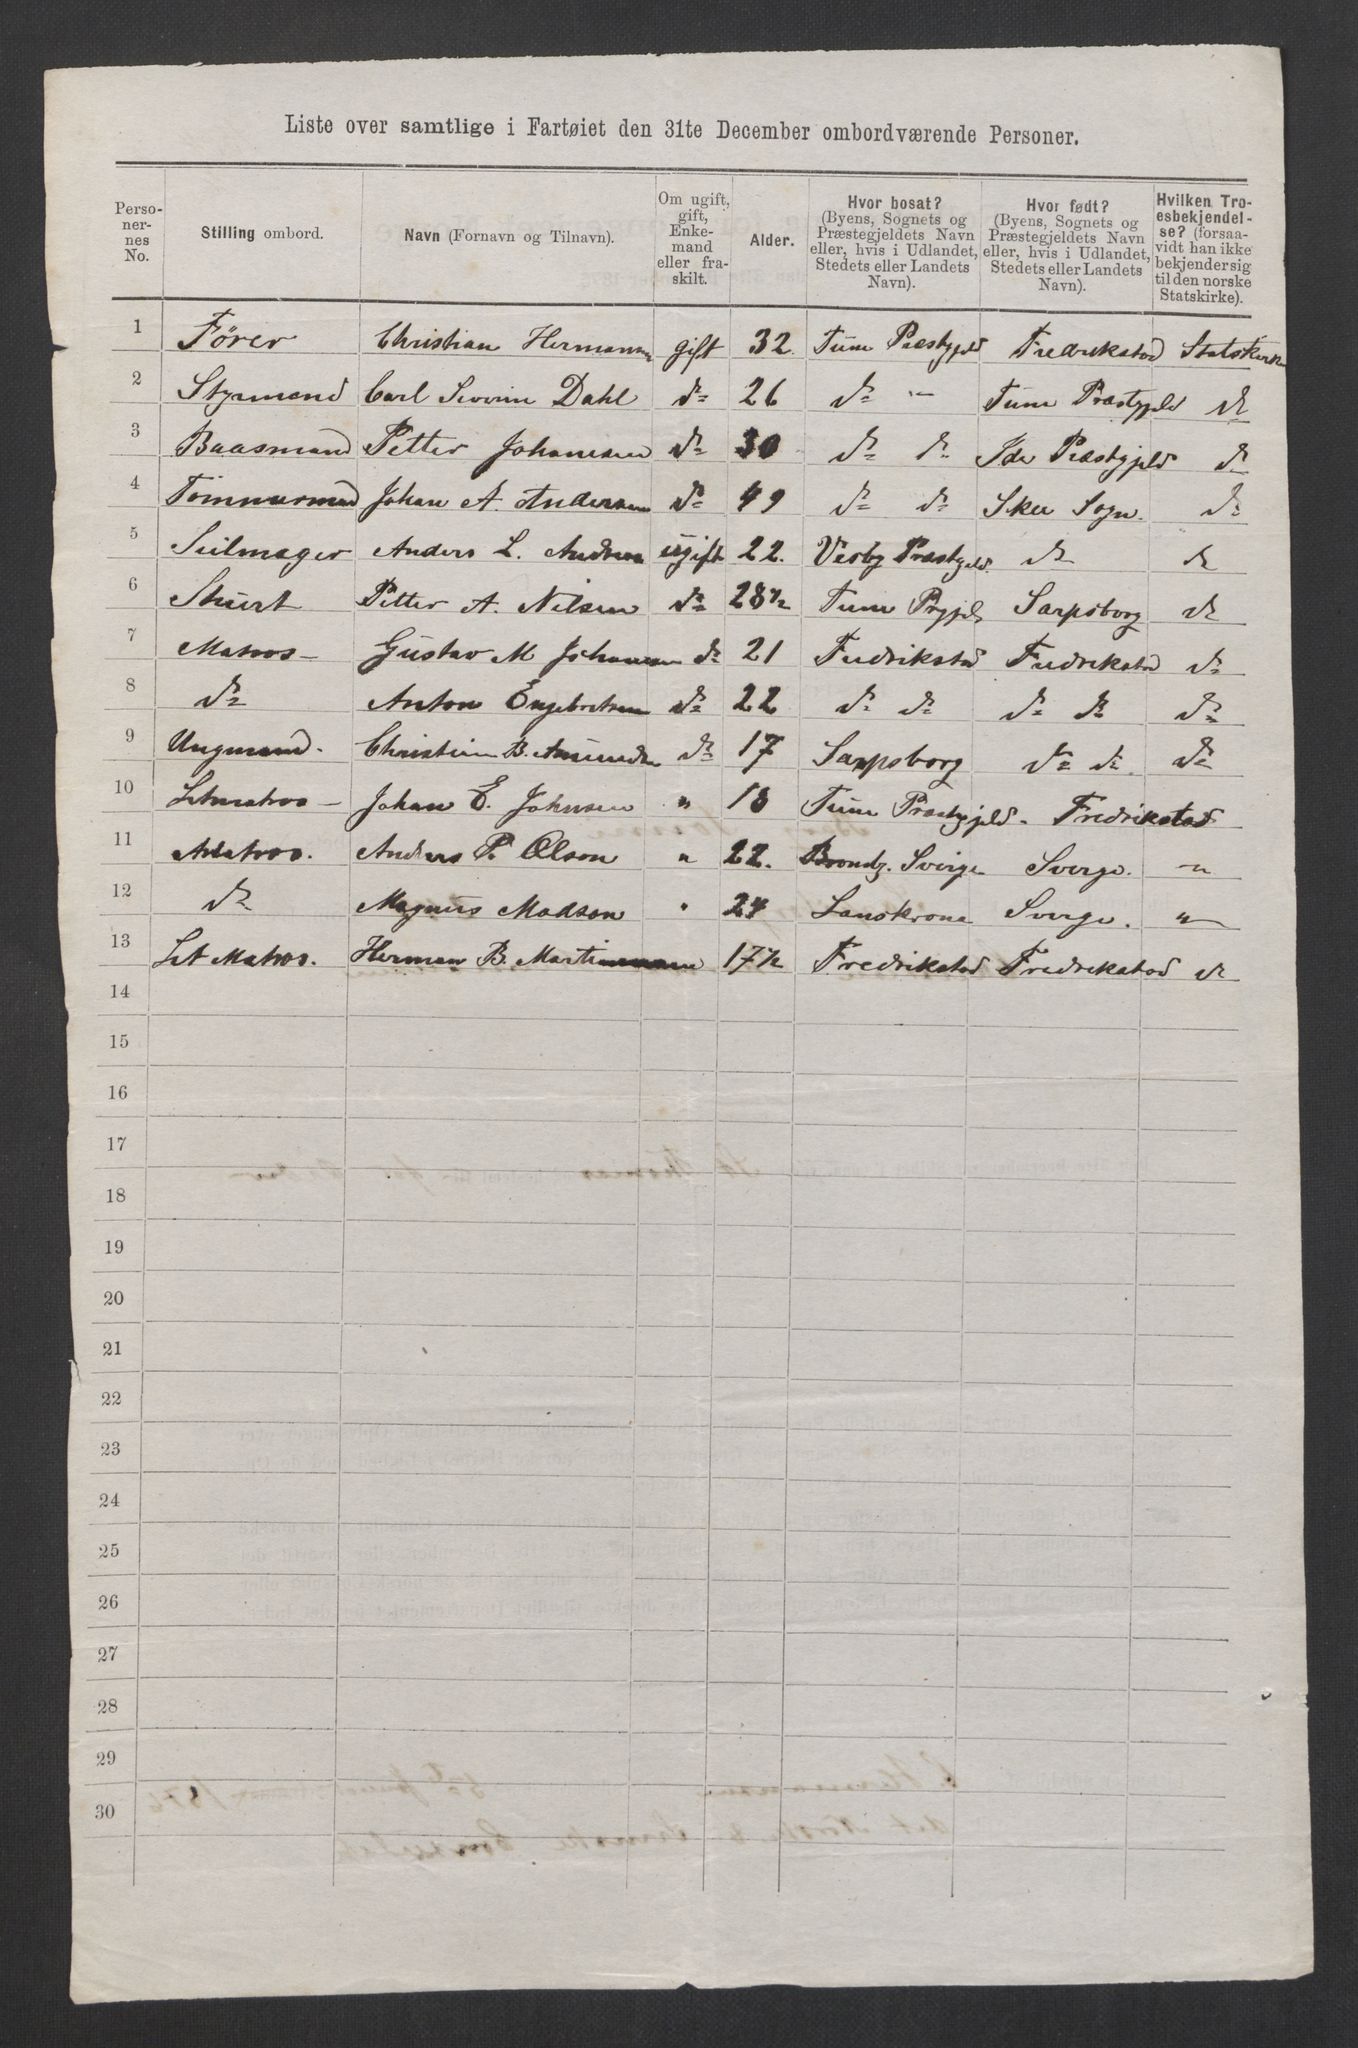 Liste over samtlige i Fartøiet den 31te December ombordværende Personer.
Perso-
ner-
nes
No.
Stilling ombord.
Navn (Fornavn og Tilnavn).
Om ugift,
gift,
Enke-
mand
eller fra-
skilt.
Alder.
Hvor bosat?
(Byens, Sognets og
Præstegjeldets Navn
eller, hvis i Udlandet,
Stedets eller Landets
Navn).
Hvor født?
(Byens, Sognets og
Præstegjeldets Navn
eller, hvis i Udlandet,
Stedets eller Landets
Navn).
Hvilken Tro-
esbekjendel-
se? (forsaa-
vidt han ikke
bekjender sig
til den norske
Statskirke).
1 Förer Christian Hermansen gift 32. Tune Præstgjeld Fredrikstad Statskirken
2 Styrmand Carl Severin Dahl do 26 do " Tune Præstgjeld do
3 Baasmand Petter Johansen do 30 do do Ide Præstgjeld do
4 Tömmermand Johan A. Andersen do 49 do do Skee Sogn. do
5 Seilmager Anders L. Andersen ugift 22. Vestby Præstgjeld. do do
6 Stuert Petter A. Nilsen do 28½ Tune Prgjd. Sarpsborg do
7 Matros Gustav M Johansen do 21 Fredrikstad Fredrikstad do
8 do Anton Engebretsen do 22 do do do do do
9 Ungmand. Christian B. Amundsen do 17 Sarpsborg do do. do
10 Letmatros Johan E. Johnsen " 18 Tune Præstgjeld. Fredrikstad
11 Matros. Anders P. Olson " 22. Sverige Sverge. "
12 do Magnus Madson " 24 Lanskrona Sverge. "
13 Let Matros. Herman B. Martinsen 17½ Fredrikstad Fredrikstad do
14
15
16
17
18
19
20
21
22
23
24
25
26
27
28
29
30